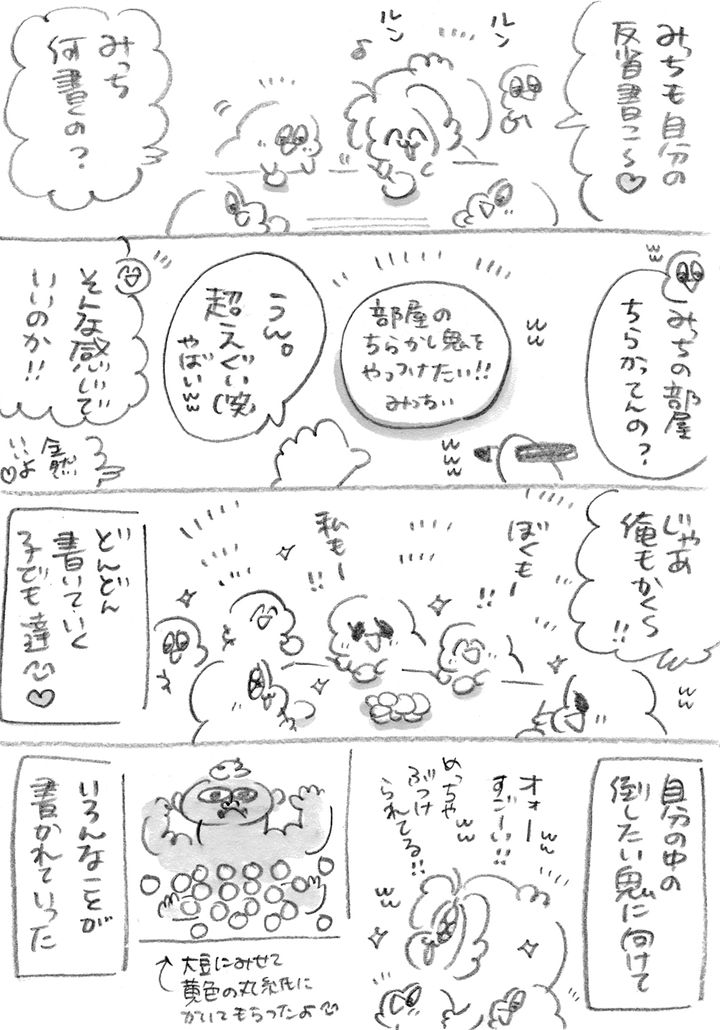 みっちも自分の
反省書こ〜♡
ルン
ルン
♪
みっち
何書くの？
みっちの部屋
ちらかってんの？
ww
ww
部屋の
ちらかし鬼を
やっつけたい!!
みっちぃ
www
うん。
超えぐい(笑)
やばいww
そんな感じで
いいのか!!
全然
いいよ
♡
じゃあ
俺もかく〜
!!
ww
ぼくもー
!!
私もー
!!
どんどん
書いていく
子ども達♡
自分の中の
倒したい鬼に向けて
オォーww
すごーい!!
ww
めっちゃ
ぶつけ
られてる!!
ww
大豆にみせて
黄色の丸い紙に
かいてもらったよ
いろんなことが
書かれていった